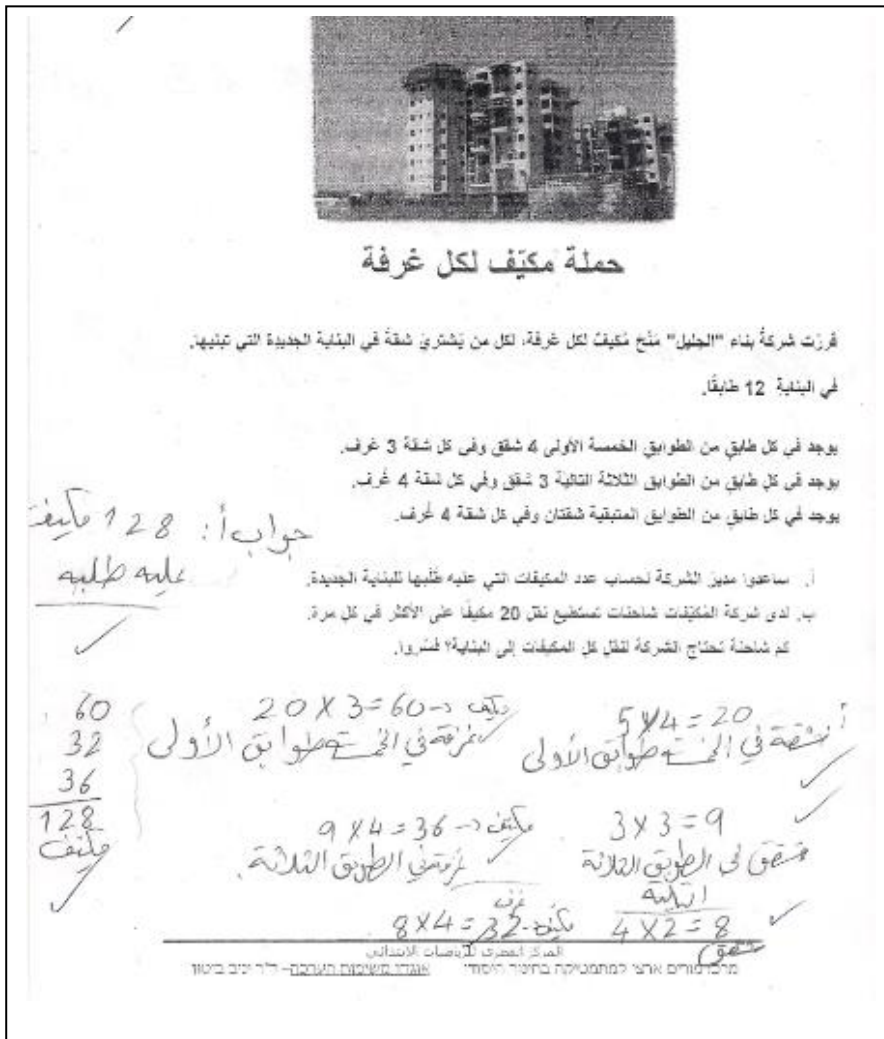 حملة مكيّف لكل غرفة
قررت شركةُ بناء "الجليل" مَنْحَ مُكيفٍ لكل غرفة، لكل من يَشتري شقةً في البناية الجديدة التي تبنيها.
في البناية 12 طابقًا.
يوجد في كل طابقٍ من الطوابق الخمسة الأولى 4 شقق وفي كل شقة 3 غرف.
يوجد في كل طابقٍ من الطوابق الثلاثة التالية 3 شقق وفي كل شقة 4 غُرف.
يوجد في كل طابقٍ من الطوابق المتبقية شقتان وفي كل شقة 4 غُرف.
جواب أ: 128 مكيف
عليه طلبه
أ. ساعدوا مديرَ الشركة لحساب عدد المكيفات التي عليه طَلَبها للبناية الجديدة.
ب. لدى شركة المُكيّفات شاحنات تستطيع نقل 20 مكيفًا على الأكثر في كل مرة.
كم شاحنة تحتاج الشركة لنقل كل المكيفات إلى البناية؟ فسّروا.
أ 5X4=20
شقة في الخمسة طوابق الأولى
20X3=60 مكيف
غرفة في الخمسة طوابق الأولى
3X3=9
شقق في الطوبق الثلاثة
التلية
9X4=36 مكيف
غرفة في الطوبق الثلاثة.
4X2=8
شقق
8X4=32 مكيف
غرف
60
32
36
128
مكيف
المركز القطري للرياضيات الابتدائي
מרכז מורים ארצי למתמטיקה בחינוך היסודי אוגדן משימות הערכה– ד"ר יניב ביטון